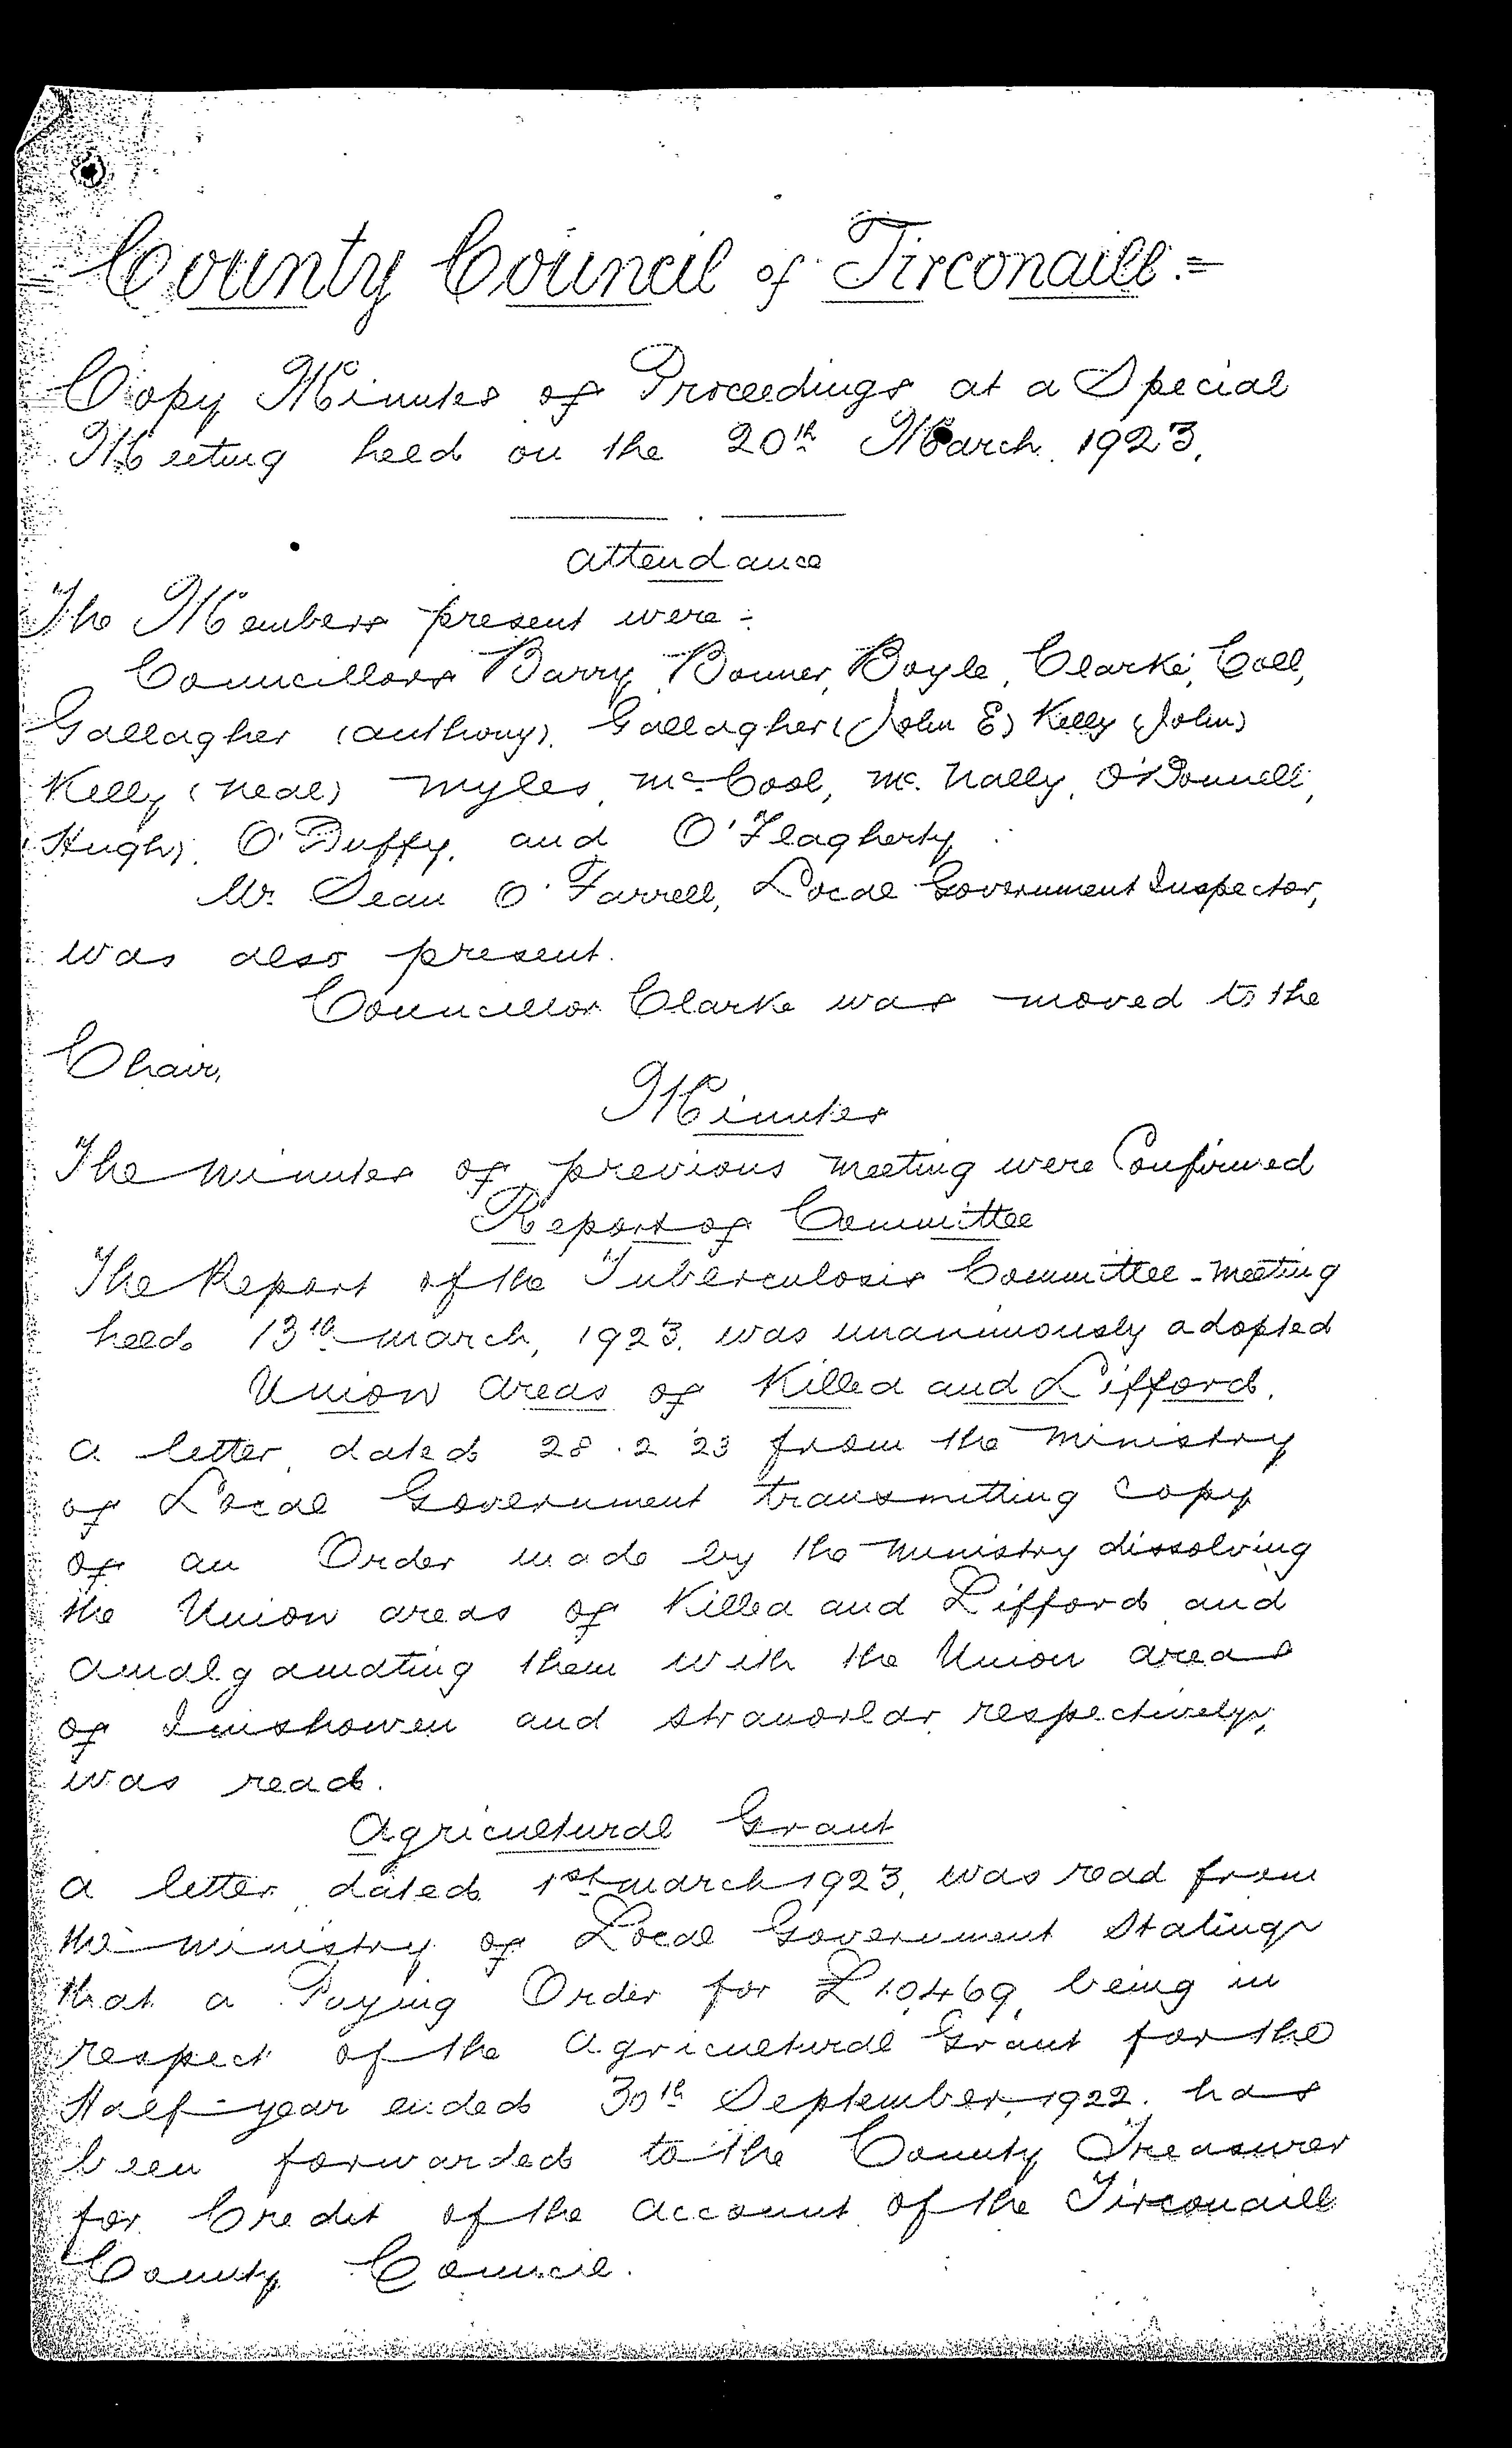 County Council of Tirconaill:=
Copy Minutes of Proceedings at a Special
Meeting held on the 20th March. 1923.
Attendance
The Members present were :
Councillors Barry, Bonner, Boyle, Clarke, Coll,
Gallagher (Anthony), Gallagher (John E) Kelly (John)
Kelly (Neal) Myles, McCool, Mc. Nally, O'Donnell,
(Hugh), O'Duffy, and O'Flagherty
Mr. Sean O'Farrell, Local Government Inspector,
was also present.
Councillor Clarke was moved to the
Chair,
Minutes
The Minutes of previous meeting were Confirmed
Report of Committee
The Report of the Tuberculosis Committee - meeting
held 13th March, 1923. was unanimously adopted
Union Areas of Killea and Lifford.
A letter dated 28.2.'23 from the Ministry
of Local Government transmitting Copy
of an Order made by the Ministry dissolving
the Union areas of Killea and Lifford and
Amalgamating them with the Union areas
of Inishowen and Stranorlar, respectively,
was read.
Agricultural Grant
A letter, dated 1st March 1923, was read from
the Ministry of Local Government Stating
that a Paying Order for £10,469, being in
respect of the Agricultural Grant for the
Half-year ended 30th September, 1922. has
been forwarded to the County Treasurer
for Credit of the Account of the Tirconaill
County Council.